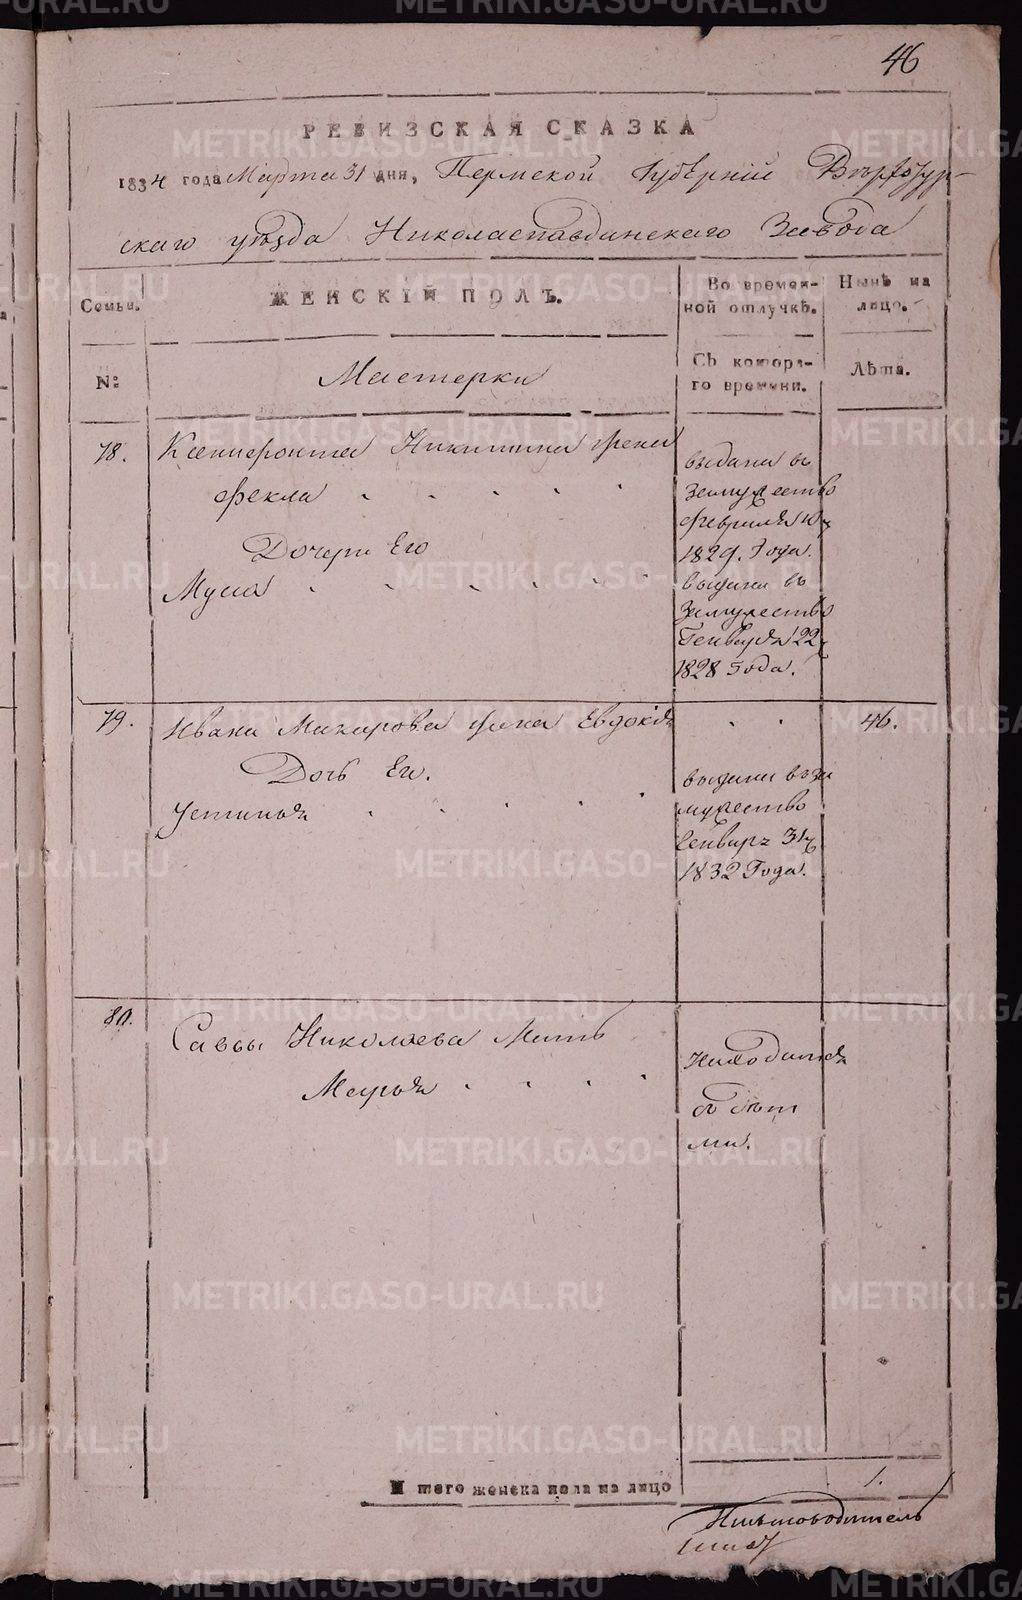 46
РЕВИЗСКАЯ СКАЗКА
1834 года Марта 31 дня, Пермской Губерніи Верхотур-
скаго уезда Николаепавдинскаго Завода
Семьи.
ЖЕНСКІЙ ПОЛЪ.
Во времен-
ной отлучкѣ.
Нынѣ на
лицо.
№
Мастерки
Съ котора-
го времени.
Лѣта.
78.
Ксенофонта Никитина жена
Фекла
выдана въ
замужество
февраля 10
1829. Года.
Дочери Его
Муза
выдана въ
замужество
Генваря 22
1828 года.
79.
Ивана Макарова жена Евдокія
46.
Дочь Его.
Устинья
выдана въ за
мужество
Генваря 31
1832 Года.
80.
Саввы Николаева Мать
Марья
находится
въ
ми.
И того женска пола на лицо
1.
Письмоводитель
METRIKI.GASO-URAL.RU